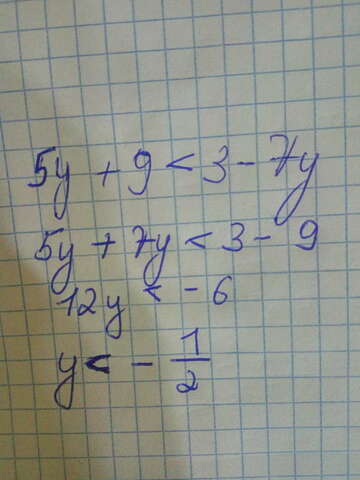 5y + 9 < 3 - 7y
5y + 7y < 3 - 9
12y < - 6
y < - 1/2